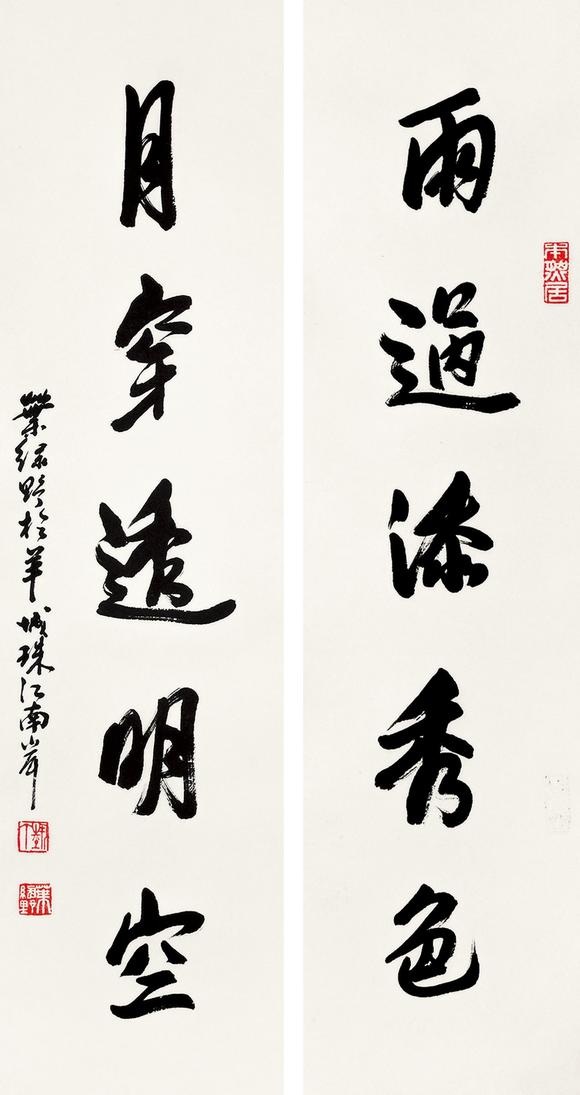 雨過添秀色
月穿透明空
葉绿野於羊城珠江南岸